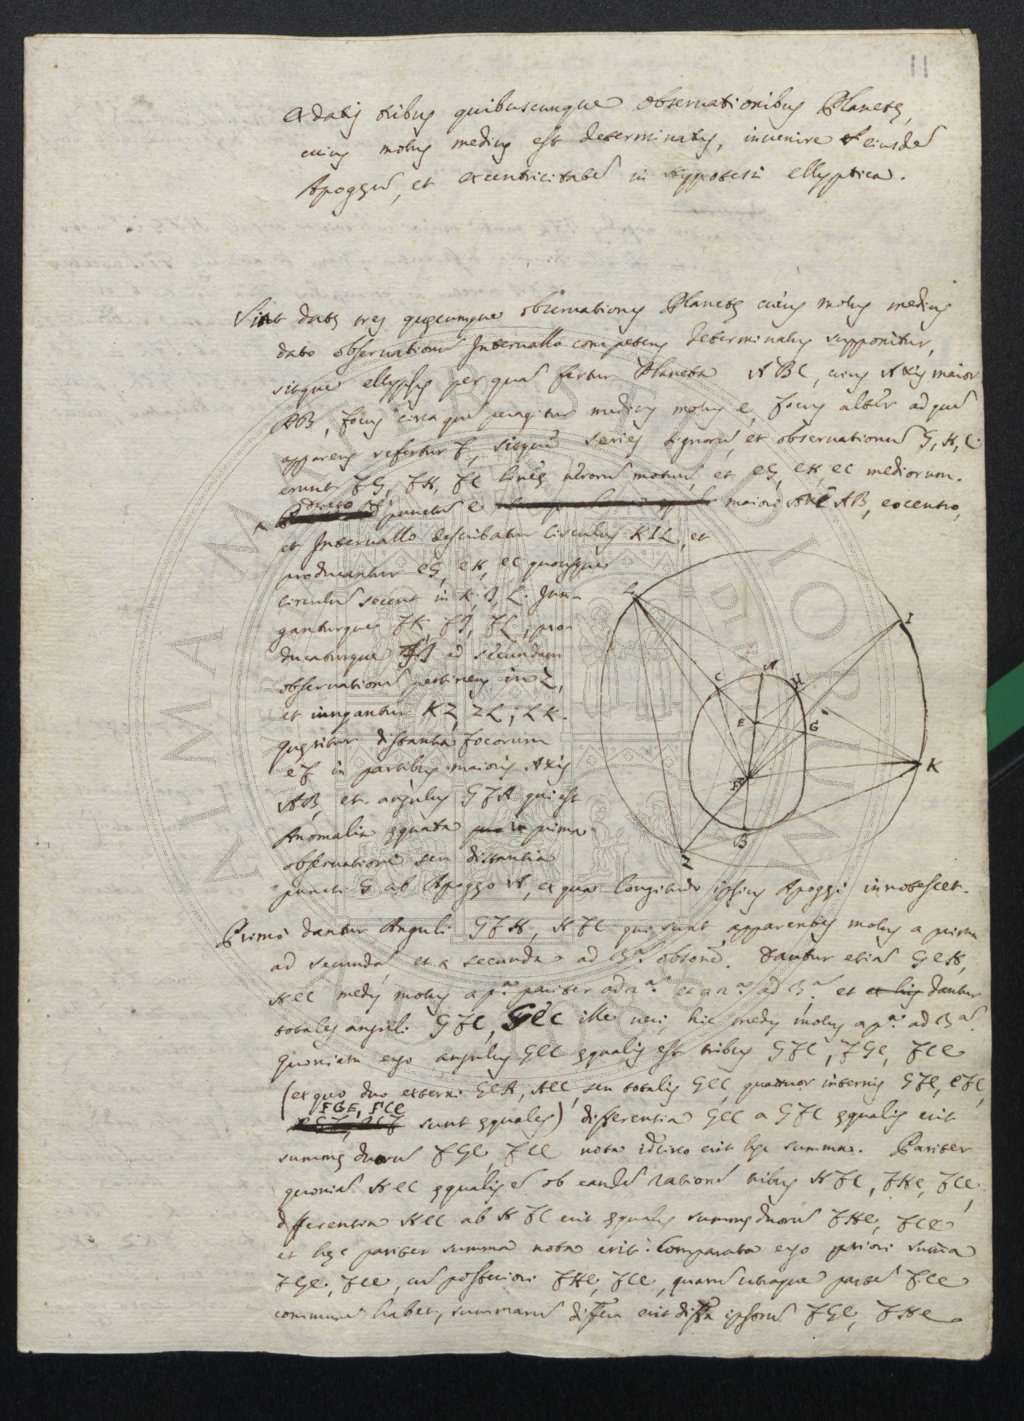 11
Ex datis tribus quibuscunque observationibus Planetę,
cuius motus medius est determinatus, invenire eiusdē
Apogęū, et excentricitatē in Hyppotesi ellyptica.
Sint datę tres quęcumque observationes Planetę cuius motus medius
dato observationū Intervallo competens determinatus supponitur,
sitque ellypsis per quā fertur Planeta ABC, cuius Axis maior
AB, focus circa quē peragitur medius motus E, focus alter ad quē
apparens refertur F, sitque series signorū, et observationū G, H, C.
erunt FG, FH, FC linęę verorū motuū, et EG, EH, EC mediorum.
puncto E maiori AB, excentro,
et Intervallo describatur circulus KIL, et
producantur EG, EH, EC quousque
circulū secent in K, I, L. Jun-
ganturque FK, FI, FL, pro-
ducaturque FI ad secundam
observationē pertinens in Z,
et iungantur KZ, ZL, LK.
quęritur distantia focorum
EF in partibus maioris Axis
AB, et angulus GFA qui est
Anomalia ęquata in prima
observatione seu distantia
puncti G ab Apogęo A, ex qua longitudo ipsius Apogęi innotescet.
L I A H C E G F K B Z
Primo dantur Anguli GFH, HFC qui sunt apparentes motus a prima
ad secundā, et a secunda ad 3ā obsonē. Dantur etiā GEH,
HEC medij motus a pa pariter ad 2ā et a 2a ad 3ā et dantur
totales anguli GFC, GEC ille veri, hic medij motus a pa ad 3ā.
Quoniam ergo angulus GEC ęqualis est tribus GFC, FGE, FCE
(ex quo duo externi GEA, AEC, seu totalis GEC, quatuor internis GFE, EFC,
FGE, FCE sunt ęquales) differentia GEC a GFC ęqualis erit
summę duorū FGE, FCE nota idcirco erit hęc summa. Pariter
quoniā HEC ęqualis ē ob eandē rationē tribus HFC, FHE, FCE,
differentia HEC ab HFC erit ęqualis summę duorū FHE, FCE
et hęc pariter summa nota erit. Comparata ergo priori suma
FGE, FCE, cū posteriori FHE, FCE, quarū utraque partē FCE
communē habet, summarū differa erit differa ipsorū FGE, FHE